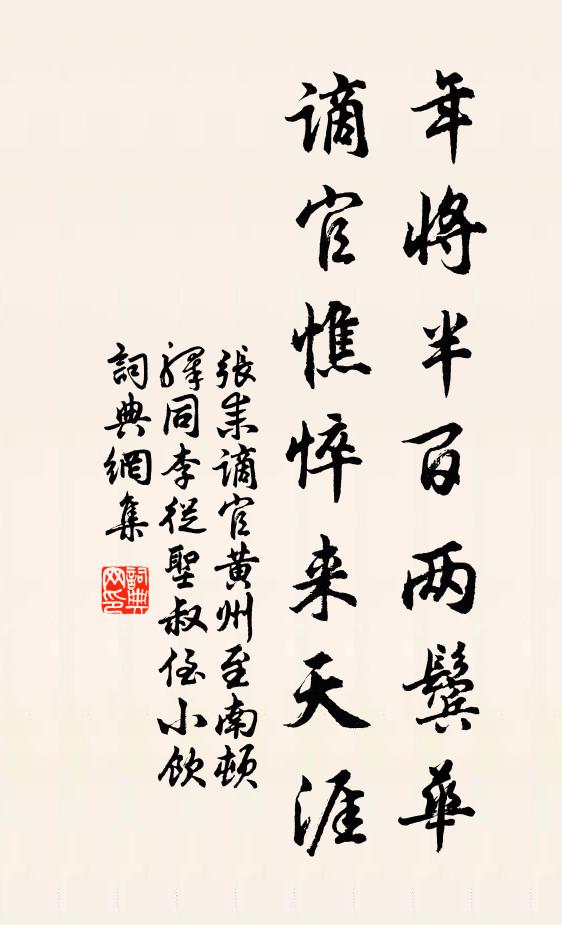 年将半百两鬓華
谪官憔悴来天涯
張耒谪官黄州至南頓
驛同李從聖叔侄小飲
詞典網集
詞典
网印